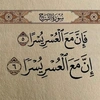 سورة الشرح
فَإِنَّ مَعَ ٱلْعُسْرِ يُسْرًا ٥
إِنَّ مَعَ ٱلْعُسْرِ يُسْرًا ٦